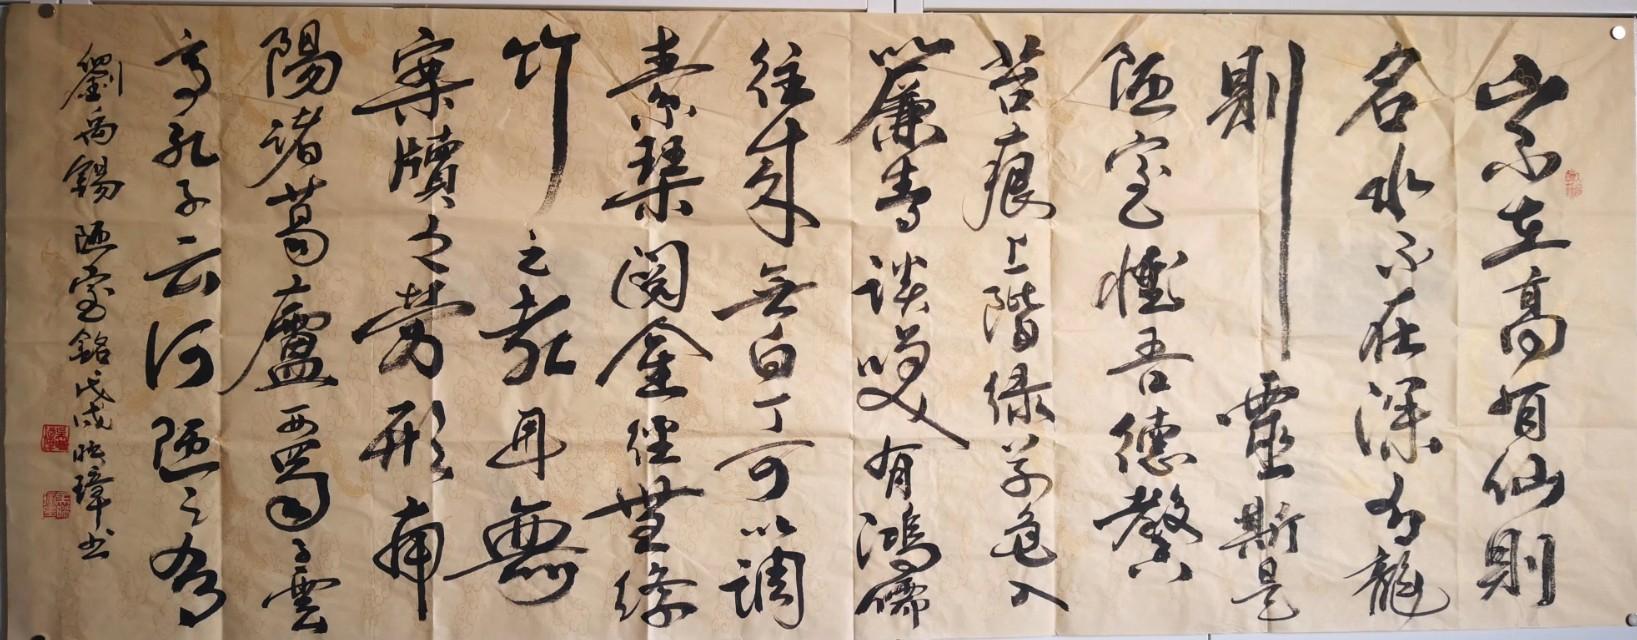 山不在高有仙則
名水不在深有龍
則靈斯是
陋室惟吾德馨
苔痕上階绿草色入
簾青談笑有鴻儒
往來無白丁可以調
素琴閱金經無絲
竹之亂耳無
案牘之勞形南
陽諸葛廬西蜀子雲
亭孔子云何陋之有
劉禹錫陋室銘戊戌璋书